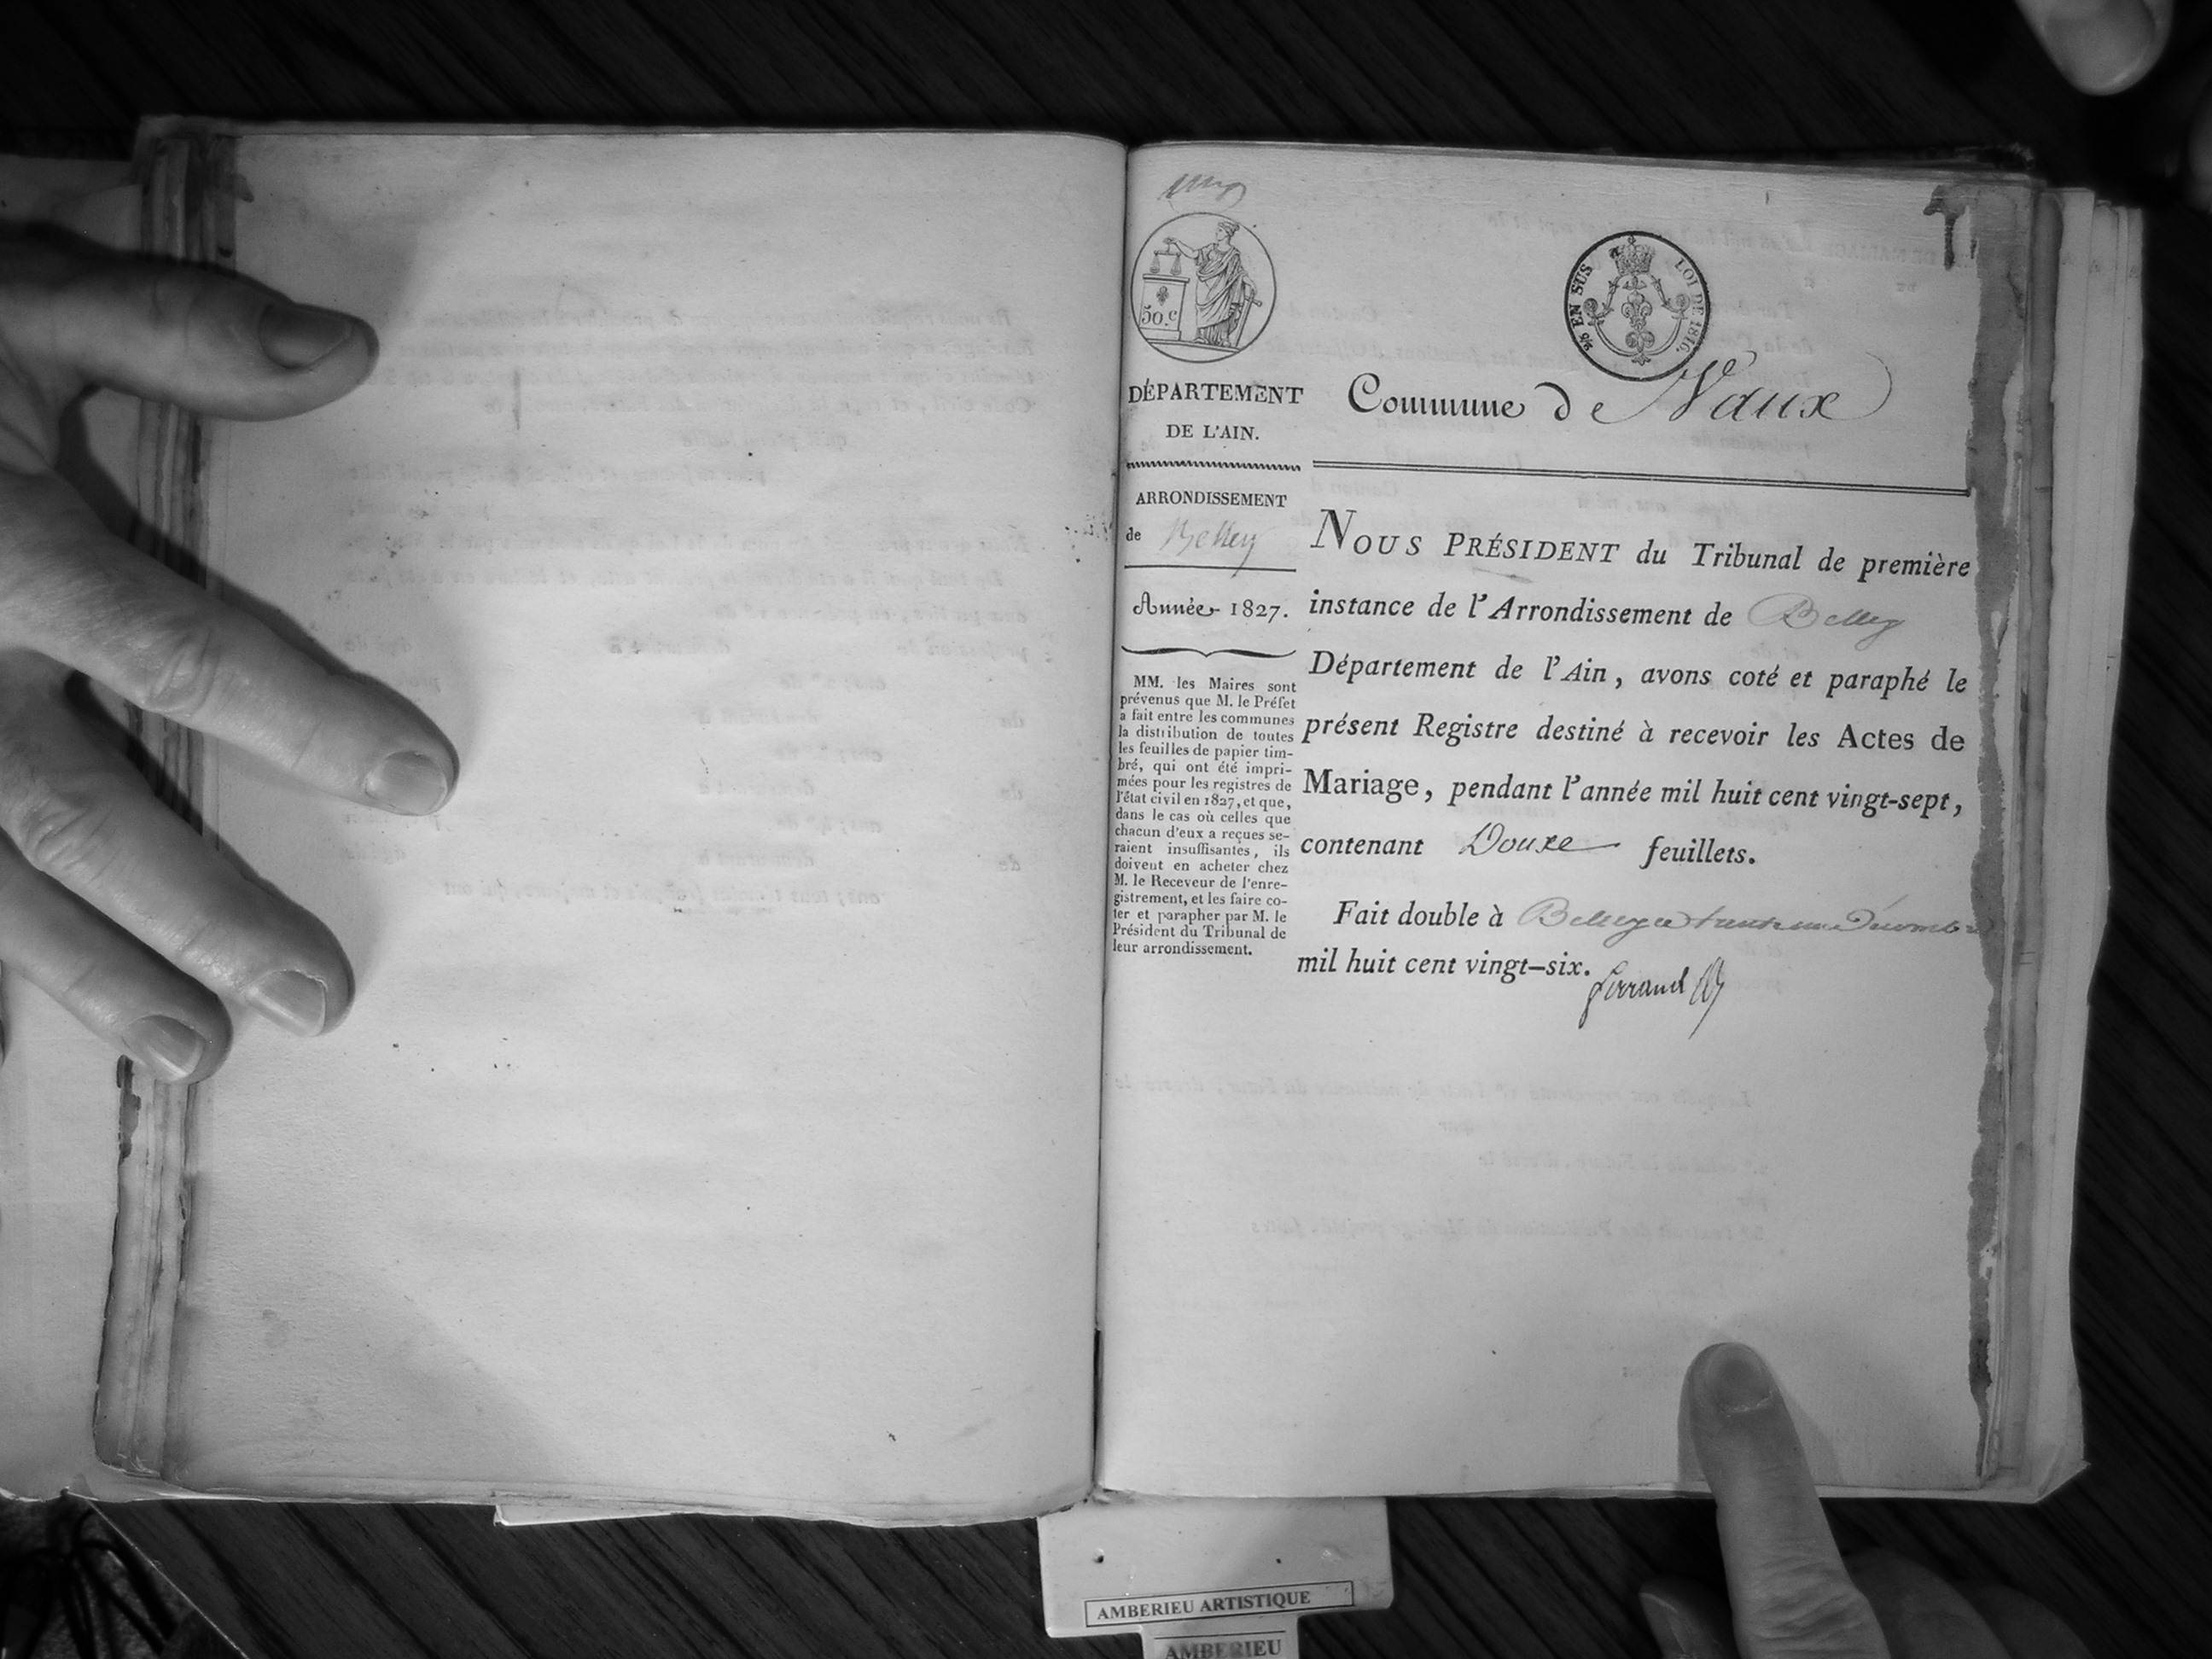 50.c
2/5 EN SUS LOI DE 1816.
DÉPARTEMENT
DE L'AIN.
Commune de Vaux
ARRONDISSEMENT
de Belley
Année 1827.
MM. les Maires sont
prévenus que M. le Préfet
a fait entre les communes
la distribution de toutes
les feuilles de papier tim-
bré, qui ont été impri-
mées pour les registres de
l'état civil en 1827, et que,
dans le cas où celles que
chacun d'eux a reçues se-
raient insuffisantes, ils
doivent en acheter chez
M. le Receveur de l'enre-
gistrement, et les faire co-
ter et parapher par M. le
Président du Tribunal de
leur arrondissement.
NOUS PRÉSIDENT du Tribunal de première
instance de l'Arrondissement de Belley
Département de l'Ain, avons coté et paraphé le
présent Registre destiné à recevoir les Actes de
Mariage, pendant l'année mil huit cent vingt-sept,
contenant Douze feuillets.
Fait double à Belley le trente une Décembre
mil huit cent vingt-six.
Ferrand
AMBERIEU ARTISTIQUE
AMBERIEU